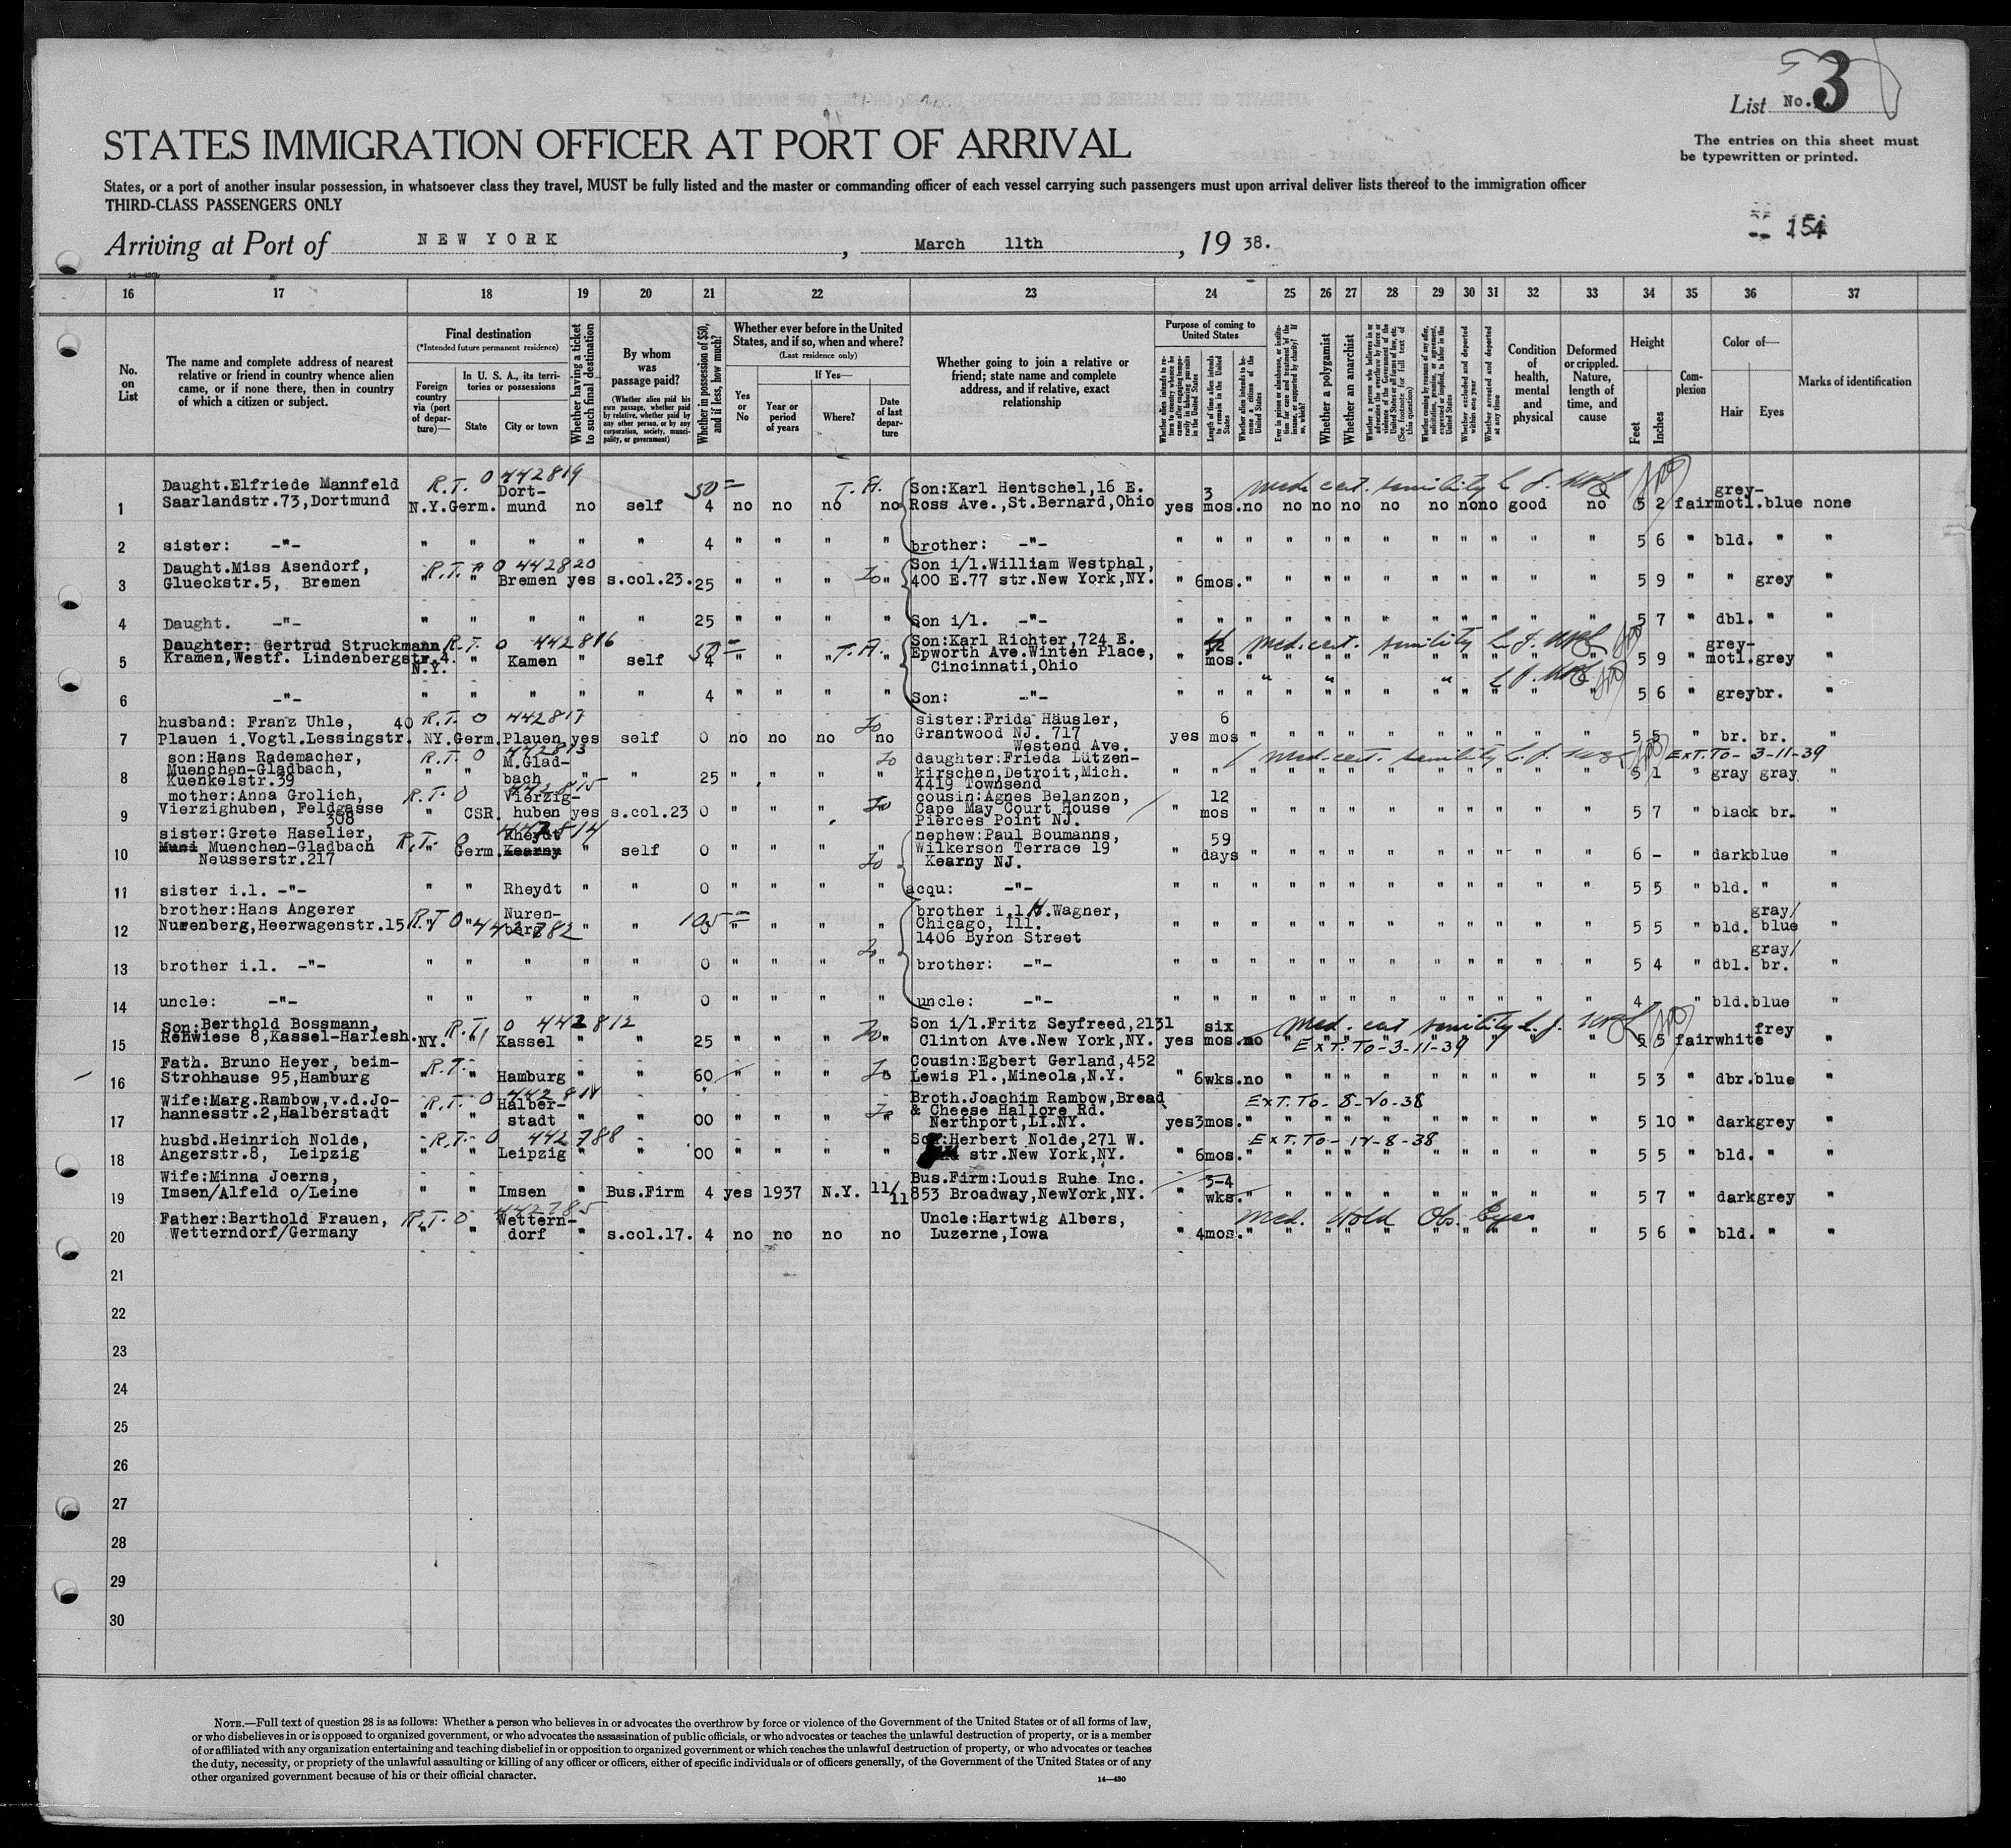 3
List No.
The entries on this sheet must
be typewritten or printed.
STATES IMMIGRATION OFFICER AT PORT OF ARRIVAL
States, or a port of another insular possession, in whatsoever class they travel, MUST be fully listed and the master or commanding officer of each vessel carrying such passengers must upon arrival deliver lists thereof to the immigration officer
THIRD-CLASS PASSENGERS ONLY
154
Arriving at Port of NEW YORK, March 11th, 19 38.
16 17 18 19 20 21 22 23 24 25 26 27 28 29 30 31 32 33 34 35 36 37
No. on List
The name and complete address of nearest relative or friend in country whence alien came, or if none there, then in country of which a citizen or subject.
Final destination
(*Intended future permanent residence)
Foreign country via (port of departure)—
In U. S. A., its territories or possessions
State
City or town
Whether having a ticket to such final destination
By whom was passage paid?
(Whether alien paid his own passage, whether paid by relative, whether paid by any other person, or by any corporation, society, municipality, or government)
Whether in possession of $50, and if less, how much?
Whether ever before in the United States, and if so, when and where?
(Last residence only)
Yes or No
If Yes—
Year or period of years
Where?
Date of last departure
Whether going to join a relative or friend; state name and complete address, and if relative, exact relationship
Purpose of coming to United States
Length of time alien intends to remain in the United States
Whether alien intends to become a citizen of the United States
Whether a polygamist
Whether an anarchist
Whether excluded and deported within one year
Whether arrested and deported at any time
Condition of health, mental and physical
Deformed or crippled. Nature, length of time, and cause
Height
Feet
Inches
Complexion
Color of—
Hair
Eyes
Marks of identification
R.T. O 442819
Daught.Elfriede Mannfeld Dort- 50= T.A. Son:Karl Hentschel,16 E. 3 med. cert. senility grey-
1 Saarlandstr.73,Dortmund N.Y. Germ. mund no self 4 no no no no Ross Ave.,St.Bernard,Ohio yes mos. no no no no no no no no good no 5 2 fair motl. blue none
2 sister: -"- " " " " " 4 " " " " brother: -"- " " " " " " " " " " " " 5 6 " bld. " "
Daught.Miss Asendorf, R.T. O 442820 Son i/l.William Westphal,
3 Glueckstr.5, Bremen " " Bremen yes s.col.23. 25 " " " " 400 E.77 str.New York,NY. " 6mos. " " " " " " " " " " 5 9 " " grey "
4 Daught. -"- " " " " " 25 " " " " Son i/l. -"- " " " " " " " " " " " " 5 7 " dbl. " "
Daughter: Gertrud Struckmann R.T. O 442816 50= T.A. Son:Karl Richter,724 E. med. cert. senility grey-
5 Kramen,Westf. Lindenbergstr.4. N.Y. " Kamen " self 4 " " " " Epworth Ave.Winten Place, " mos. " " " " " " " " " " 5 9 " motl. grey "
Cincinnati,Ohio
6 -"- " " " " " 4 " " " " Son: -"- " " " " " " " " " " " " 5 6 " grey br. "
husband: Franz Uhle, 40 R.T. O 442817 sister:Frida Häusler, 6
7 Plauen i.Vogtl.Lessingstr. NY. Germ. Plauen yes self 0 no no no no Grantwood NJ. 717 yes mos " " " " " " " " " " 5 5 " br. br. "
Westend Ave.
son:Hans Rademacher, R.T. O 442813 M.Glad- daughter:Frieda Lützen- med. cert. senility EXT.TO- 3-11-39
8 Muenchen-Gladbach, " " bach " " 25 " " " " kirschen,Detroit,Mich. " " " " " " " " " " " " 5 1 " gray gray "
Kuenkelstr.39 4419 Townsend
mother:Anna Grolich, R.T. O 442815 Vierzig- cousin:Agnes Belanzon, 12
9 Vierzighuben, Feldgasse " CSR. huben yes s.col.23 0 " " " " Cape May Court House " mos " " " " " " " " " " 5 7 " black br. "
308 Pierces Point NJ.
sister:Grete Haselier, R.T. O 442814 Rheydt nephew:Paul Boumanns, 59
10 Muni Muenchen-Gladbach " Germ. Kearny " self 0 " " " " Wilkerson Terrace 19 " days " " " " " " " " " " 6 - " dark blue "
Neusserstr.217 Kearny NJ.
11 sister i.l. -"- " " Rheydt " " 0 " " " " acqu: -"- " " " " " " " " " " " " 5 5 " bld. " "
brother:Hans Angerer R.T. O 442782 Nuren- 105= brother i.l H.Wagner, gray/
12 Nurenberg,Heerwagenstr.15 " " berg " " 0 " " " " Chicago, Ill. " " " " " " " " " " " " 5 5 " bld. blue "
1406 Byron Street
13 brother i.l. -"- " " " " " 0 " " " " brother: -"- " " " " " " " " " " " " 5 4 " dbl. gray/ br. "
14 uncle: -"- " " " " " 0 " " " " uncle: -"- " " " " " " " " " " " " 4 - " bld. blue "
Son:Berthold Bossmann, R.T. O 442812 Son i/l.Fritz Seyfreed,2131 six med. cert senility frey
15 Renwiese 8,Kassel-Harlesh. NY. " Kassel " " 25 " " " " Clinton Ave.New York,NY. yes mos. no " " " " " " " " " 5 5 fair white "
EXT.TO-3-11-39
Fath. Bruno Heyer, beim- R.T. Cousin:Egbert Gerland,452
16 Strohhause 95,Hamburg " " Hamburg " " 60 " " " " Lewis Pl.,Mineola,N.Y. " 6wks. no " " " " " " " " " 5 3 " dbr. blue "
Wife:Marg.Rambow,v.d.Jo- R.T. O Halber- Broth.Joachim Rambow,Bread EXT.TO-8-20-38
17 hannesstr.2,Halberstadt " " stadt " " 00 " " " " & Cheese Hallore Rd. yes 3mos. " " " " " " " " " " 5 10 " dark grey "
Northport,LI.NY.
husbd.Heinrich Nolde, R.T. O 442788 Son:Herbert Nolde,271 W. EXT.TO-12-8-38
18 Angerstr.8, Leipzig " " Leipzig " " 00 " " " " str.New York,NY. " 6mos. " " " " " " " " " " 5 5 " bld. " "
Wife:Minna Joerns, Bus.Firm:Louis Ruhe Inc. 3-4
19 Imsen/Alfeld o/Leine " " Imsen " Bus.Firm 4 yes 1937 N.Y. 11/11 853 Broadway,NewYork,NY. " wks. " " " " " " " " " " 5 7 " dark grey "
Father:Barthold Frauen, R.T. O 442785 Wettern- Uncle:Hartwig Albers, Med. Hold Obs. Eyes
20 Wetterndorf/Germany " " dorf " s.col.17. 4 no no no no Luzerne,Iowa " 4mos. " " " " " " " " " " 5 6 " bld. " "
21
22
23
24
25
26
27
28
29
30
NOTE.—Full text of question 28 is as follows: Whether a person who believes in or advocates the overthrow by force or violence of the Government of the United States or of all forms of law,
or who disbelieves in or is opposed to organized government, or who advocates the assassination of public officials, or who advocates or teaches the unlawful destruction of property, or is a member
of or affiliated with any organization entertaining and teaching disbelief in or opposition to organized government or which teaches the unlawful destruction of property, or who advocates or teaches
the duty, necessity, or propriety of the unlawful assaulting or killing of any officer or officers, either of specific individuals or of officers generally, of the Government of the United States or of any
other organized government because of his or their official character.
14—430